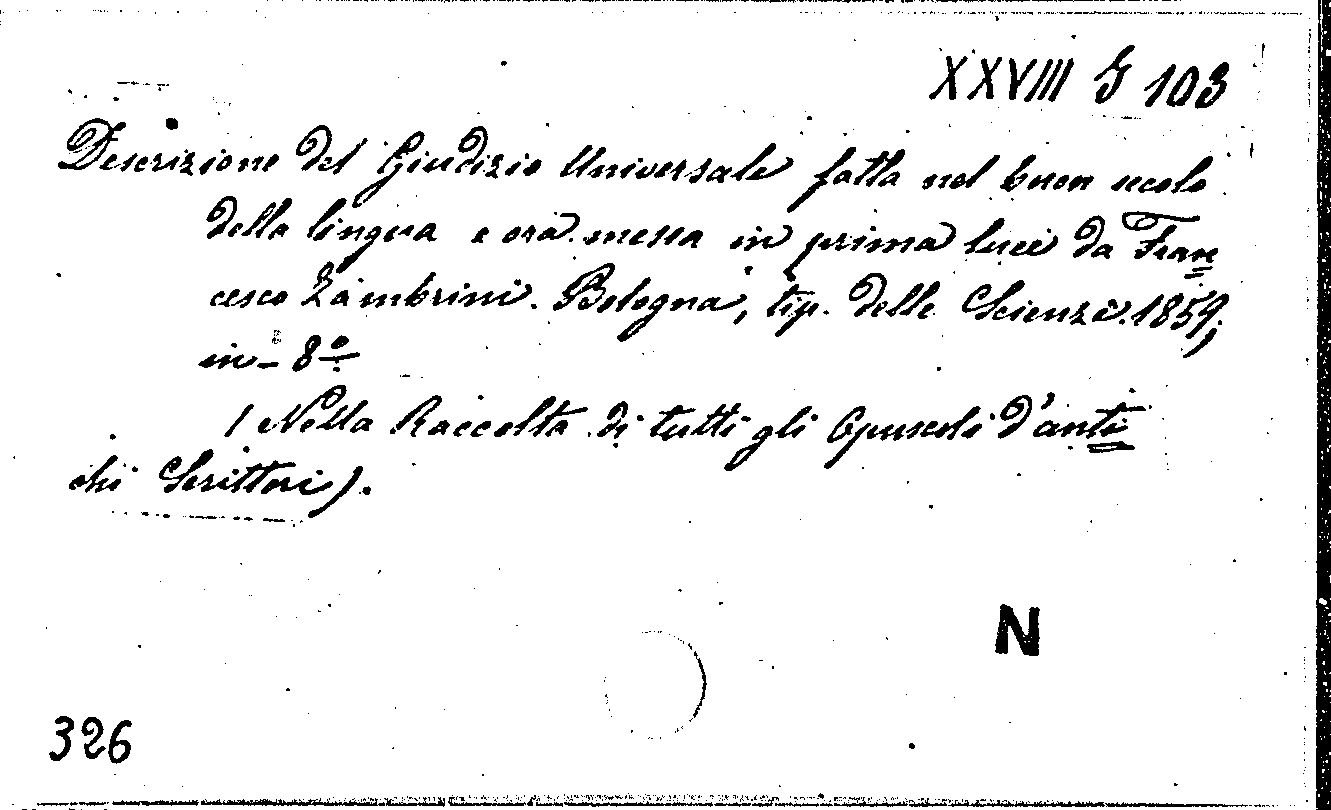 XXVIII G 103
Descrizione del Giudizio Universale fatta nel buon secolo
della lingua e ora messa in prima luce da Fran=
cesco Zambrini. Bologna, tip. delle Scienze. 1859;
in-8º
(Nella Raccolta di tutti gli Opuscoli d'anti=
chi Scrittori).
N
326